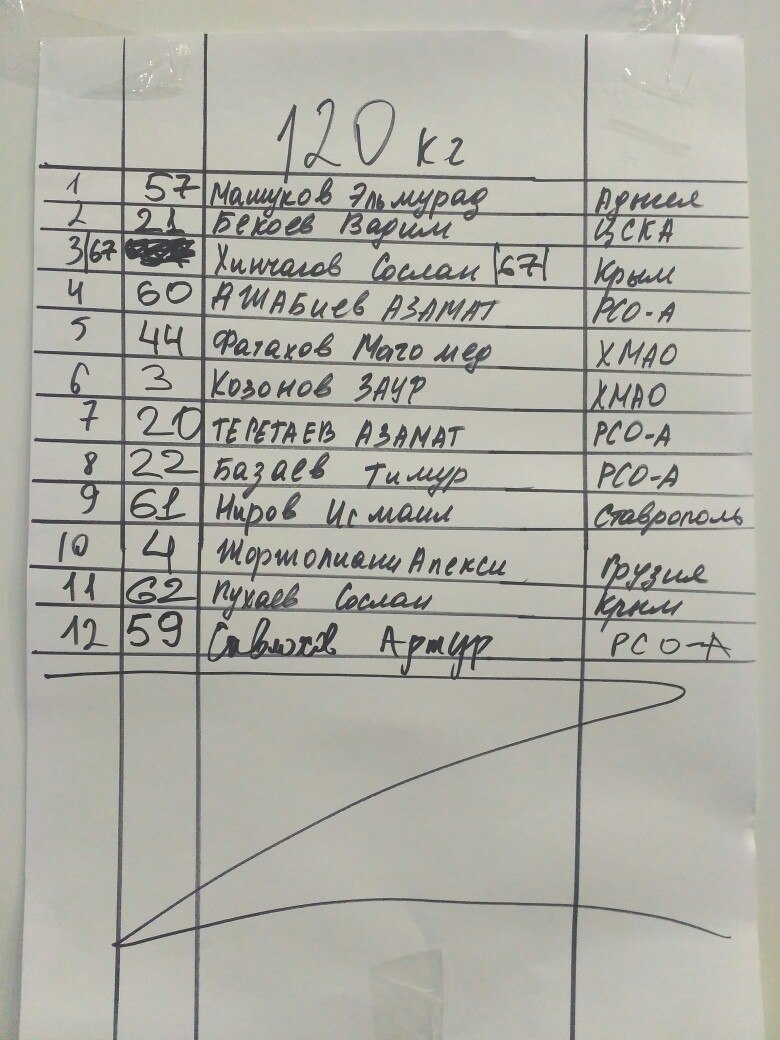 120 кг
1 57 Машуков Эльмурад Адыгея
2 21 Бекоев Вадим ЦСКА
3 67 Хинчагов Сослан 67 Крым
4 60 АЖАБИЕВ АЗАМАТ РСО-А
5 44 Фатахов Магомед ХМАО
6 3 Козонов ЗАУР ХМАО
7 20 ТЕГЕТАЕВ АЗАМАТ РСО-А
8 22 Базаев Тимур РСО-А
9 61 Ниров Исмаил Ставрополь
10 4 Жоржолиани Алекси Грузия
11 62 Пухаев Сослан Крым
12 59 Артур РСО-А